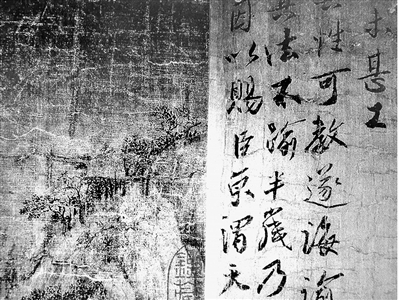 未甚工
其性可教遂誨諭
其法不踰半歲乃
因以賜臣京謂天